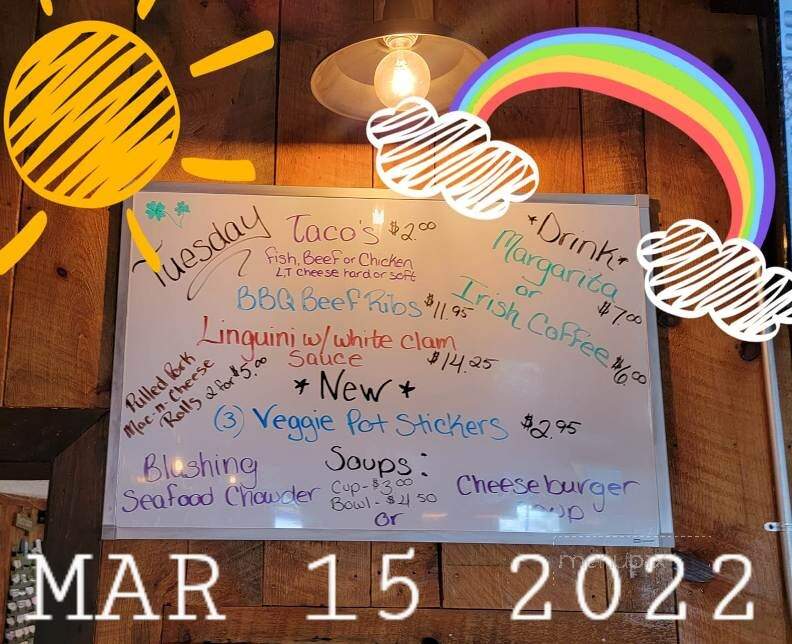 Tuesday
Taco's $2.00
Fish, Beef or Chicken
LT cheese hard or soft
BBQ Beef Ribs $11.95
Linguini w/white clam
Sauce $14.25
*Drink*
Margarita
or $7.00
Irish Coffee $6.00
Pulled Pork
Mac-n-Cheese
Rolls 2 for $5.00
*New*
(3) Veggie Pot Stickers $2.95
Blushing
Seafood Chowder
Soups:
Cup-$3.00
Bowl-$4.50
or
Cheeseburger
MAR 15 2022